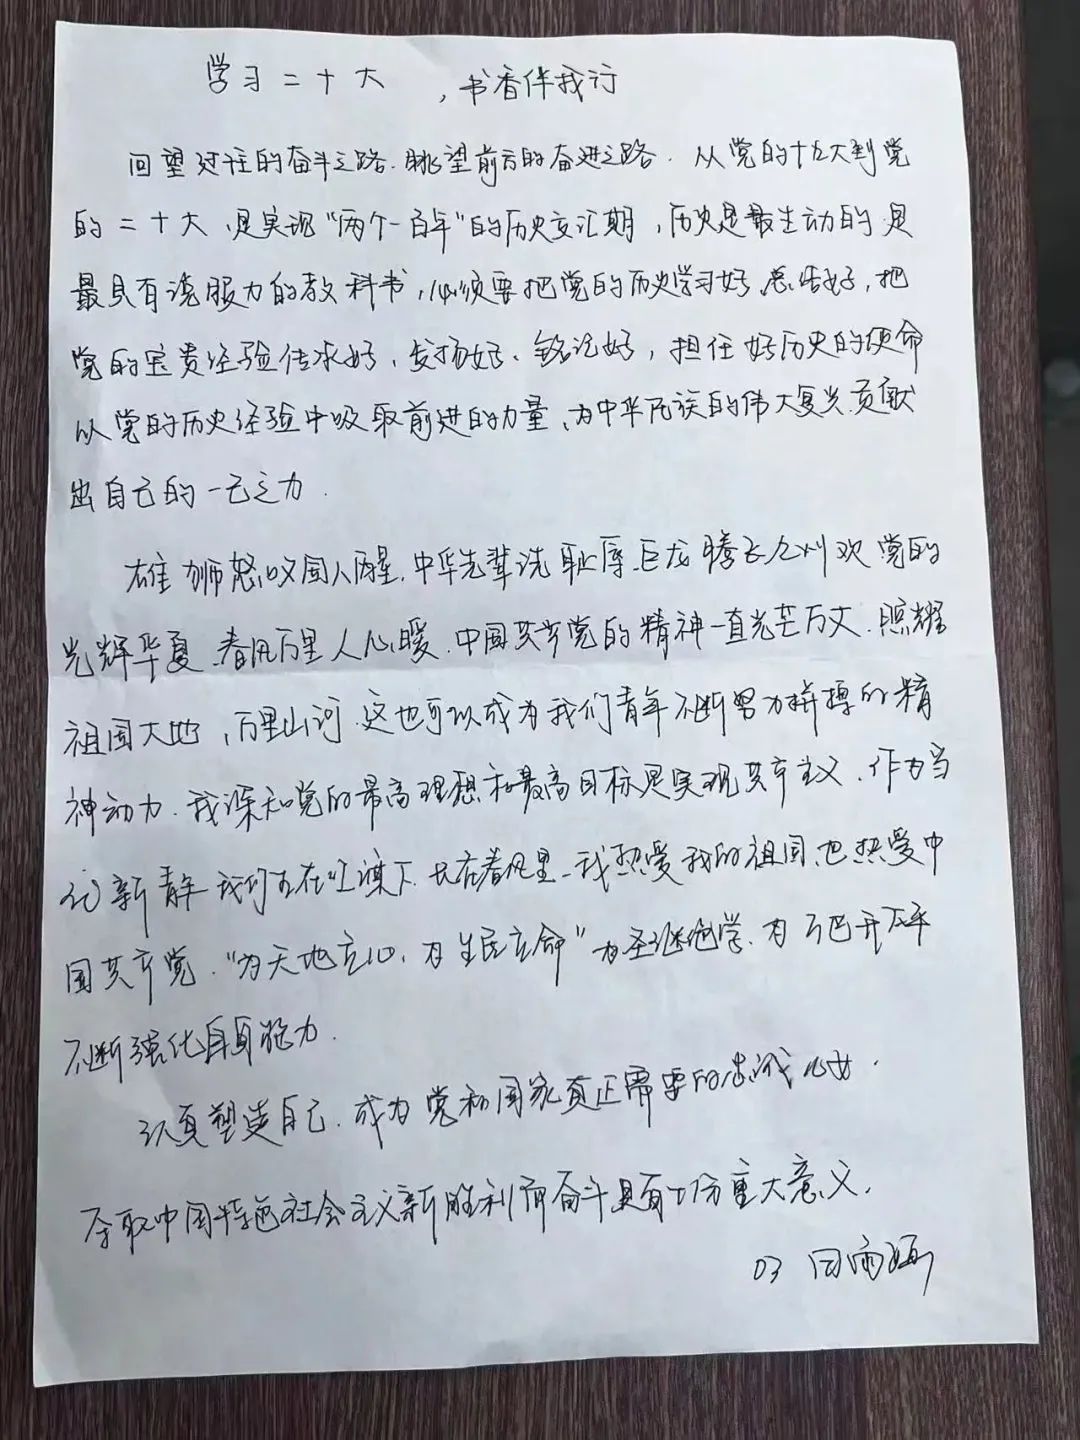 学习二十大 ，书香伴我行
回望过往的奋斗之路.眺望前方的奋进之路.从党的十九大到党
的二十大、是实现"两个一百年"的历史交汇期，历史是最生动的是
最具有说服力的教科书，必须要把党的历史学习好.总结好，把
党的宝贵经验传承好、发扬好、铭记好，担任好历史的使命
从党的历史经验中吸取前进的力量、为中华民族的伟大复兴.贡献
出自己的一己之力.
雄狮怒吼国人醒.中华先辈洗耻辱.巨龙腾飞九州欢党的
光辉华夏.春风万里人心暖.中国共产党的精神一直光芒万丈.照耀
祖国大地，万里山河.这也可以成为我们青年不断努力拼搏的精
神动力.我深知党的最高理想和最高目标是实现共产主义.作为当
代新青年我们生在红旗下.长在春风里.我热爱我的祖国.也热爱中
国共产党."为天地立心，为生民立命"为圣继绝学.为万世开太平
不断强化自身能力.
认真塑造自己.成为党和国家真正需要的忠诚儿女.
夺取中国特色社会主义新胜利而奋斗具有十分重大意义.
03 雨